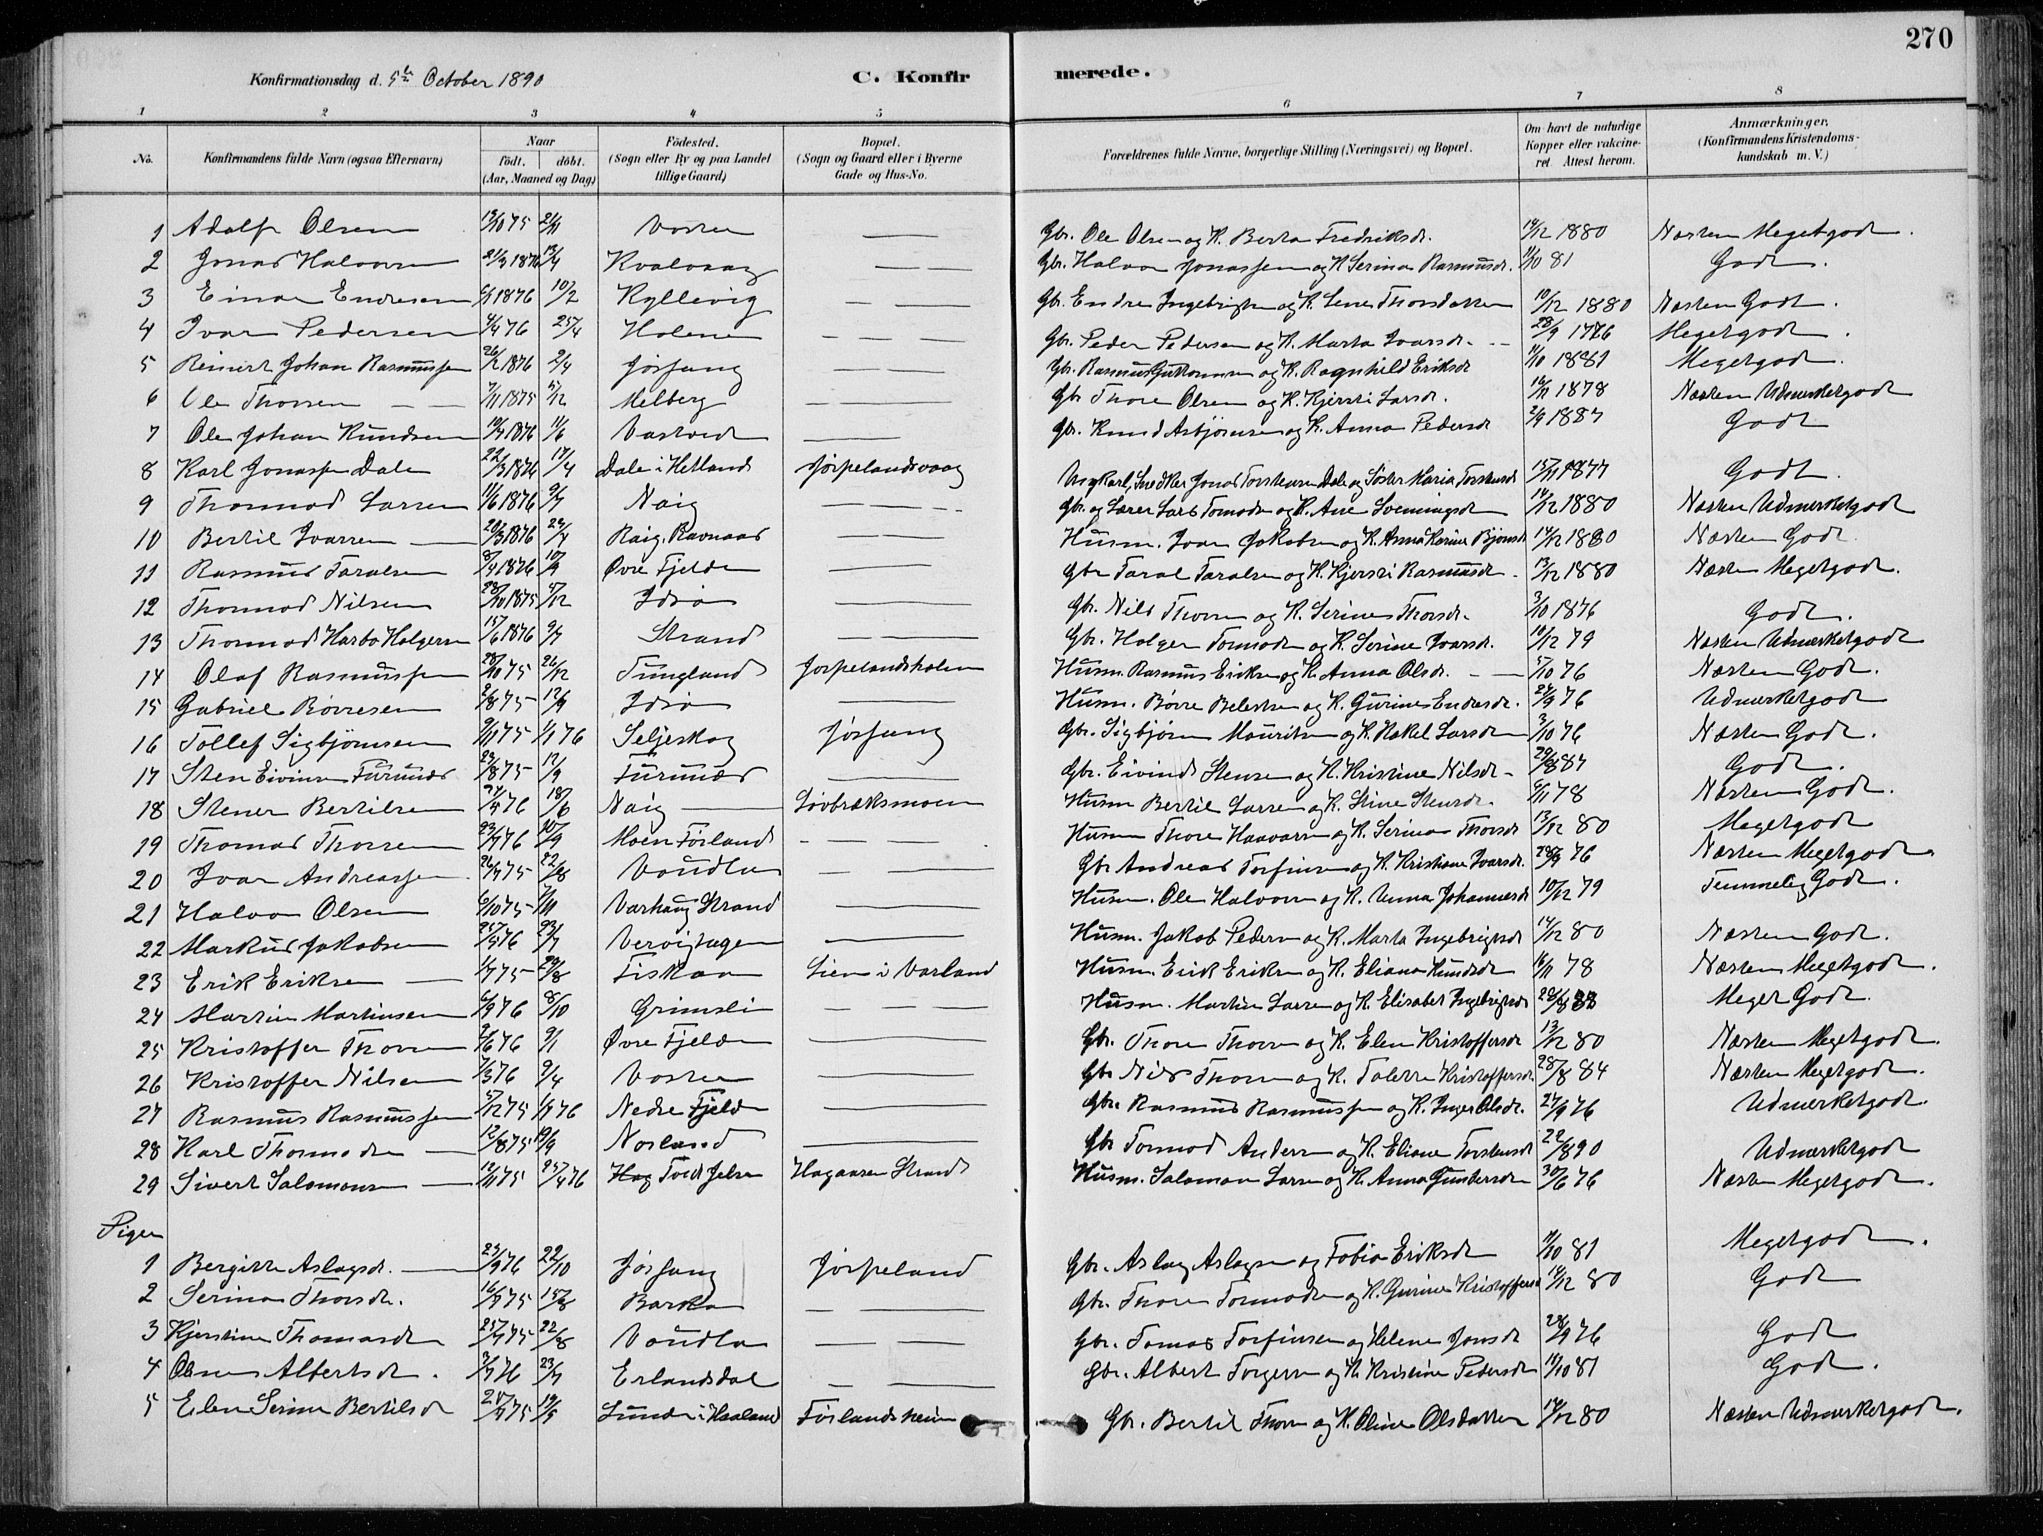 270
Konfirmationsdag d. 5te October 1890 C. Konfirmerede.
1 2 3 4 5 6 7 8
No. Konfirmandens fulde Navn (ogsaa Efternavn) Naar født. døbt. (Aar, Maaned og Dag) Fødested. (Sogn eller By og paa Landet tillige Gaard) Bopæl. (Sogn og Gaard eller i Byerne Gade og Hus-No. Forældrenes fulde Navne, borgerlige Stilling (Næringsvei) og Bopæl. Om havt de naturlige Kopper eller vakcineret. Attest herom. Anmærkninger. (Konfirmandens Kristendomskundskab m. V.)
1 Adolf Olsen 75 Voster Gbr. Ole Olsen og K. Berta Fredriksdr. 14/12 1880 Næsten Megetgodt.
2 Jonas Halvorsen 1876 Kvalvaag Gbr. Halvor Jonassen og K Serina Rasmusdr. 11/10 81 Godt.
3 Einar Endresen 1876 10/2 Kyllevig Gbr. Endre Ingebrigtsen og K. Lene Thorsdatter 10/12 1880 Næsten Godt.
4 Ivar Pedersen 4/4 76 25/4 Holene Gbr. Peder Pedersen og K. Marta Ivarsdr. 28/9 Megetgodt.
5 Reinert Johan Rasmussen 26/2 1876 2/4 Jøssang Gbr. Rasmus Guttormsen og K. Ragnhild Eriksdr 11/10 1881 Megetgodt.
6 Ole Thorsen 7/11 1875 5/12 Melberg Gbr Thore Olsen og K. Kjersti Larsdr. 16/11 1878 Næsten Udmerketgodt
7 Ole Johan Knudsen 1876 11/6 Vastveit Gbr. Knud Asbjørnsen og K. Anna Pedersdr 2/9 1887 Godt
8 Karl Jonassen Dale 22/3 1876 17/4 Dale i Hetland Jørpelandsvaag Ungkarl, Snedker Jonas Torstensen Dale og Søster Maria Torstensdr 15/11 1877 Godt.
9 Thormod Larsen 11/6 1876 9/7 Naig Gbr. og Lærer Lars Tormodsen og K. Ane Sveningsdr 14/12 1880 Næsten Udmerketgodt
10 Bertil Ivarsen 20/3 1876 Raig, Ravnaas Husm. Ivar Jakobsen og K. Anna Karine Bjørnsdr 14/12 1880 Næsten Godt.
11 Rasmus Taralsen 1876 Øvre Fjelde Gbr Taral Taralsen og K. Kjersti Rasmusdr. 13/12 1880 Næsten Megetgodt.
12 Thormod Nilsen 28/10 1875 5/12 Idsø Gbr. Nils Thorsen og K. Serine Thorsdr. 3/10 1876 Godt.
13 Thormod Harbo Holgersen 15/6 1876 9/7 Strand Gbr. Holger Tormodsen og K. Serine Ivarsdr. 10/12 79 Næsten Udmerketgodt
14 Olaf Rasmussen 28/10 75 26/12 Tungland Jørpelandsholm Husm. Rasmus Eriksen og K. Anna Olsdr. 5/10 76 Næsten Godt.
15 Gabriel Børresen 2/8 75 12/9 Idsø Husm. Børre Belestsen og K. Gurine Endresdr. 24/9 76 Udmerketgodt
16 Tollef Sigbjørnsen 9/11 75 1/1 76 Seljeskog Jøssang Gbr. Sigbjørn Mauritsen og K. Rakel Larsdr 3/10 76 Næsten Godt.
17 Sten Eivinsen Furunes 23/8 75 12/9 Furunes Gbr. Eivind Stensen og K. Kristine Nilsdr 29/8 87 Godt.
18 Stener Bertilsen 76 18/6 Naig Løvbræksmoen Husm Bertil Larsen og K. Stine Stensdr. 6/11 78 Næsten Godt.
19 Thomas Thorsen 23/7 76 10/9 Moen Førland Husm Thore Haavarsen og K. Serina Thorsdr 13/12 80 Megetgodt
20 Ivar Andreassen 26/7 75 22/8 Voudla Gbr Andreas Torfinsen og K. Kristiane Ivarsdr. 28/9 76 Næsten Megetgodt.
21 Halvor Olsen 6/10 75 7/11 Varhaug Strand Husm. Ole Halvorsen og K. Anna Johannesdr 10/12 79 Temmelig Godt.
22 Markus Jakobsen 25/5 76 23/7 Vervighagen Husm. Jakob Pedersen og K. Marta Ingebrigtsdr 14/12 80 Næsten Godt.
23 Erik Eriksen 1/7 75 29/8 Fiskaa Lien i Vorland Husm. Erik Eriksen og K. Eliana Knudsdr 16/11 78 Næsten Megetgodt.
24 Martin Martinsen 6/9 76 8/10 Grimsli Husm. Martin Larsen og K. Elisabet Ingebrigtsdr 88 Meget Godt.
25 Kristoffer Thorsen 76 9/1 Øvre Fjelde Gbr. Thore Thorsen og K. Elen Kristoffersdr 13/12 80 Næsten Megetgodt.
26 Kristoffer Nilsen 7/3 76 9/4 Voster Gbr Nils Thorsen og K. Talette Kristoffersdr. 28/8 84 Næsten Megetgodt.
27 Rasmus Rasmussen 5/12 75 1/1 76 Nedre Fjelde Gbr. Rasmus Rasmussen og K. Inger Olsdr. 27/9 76 Udmerketgodt.
28 Karl Thormodsen 12/8 75 19/9 Norland Gbr Tormod Andersen og K. Eliane Torstensdr 22/8 90 Udmerketgodt
29 Sivert Salomonsen 12/11 75 25/4 76 Tveit Jelse Hagaasen Strand Husm. Salomon Larsen og K. Anna Gundersdr 30/6 76 Næsten Megetgodt.
Piger
1 Bergitte Aslagsdr. 23/9 76 22/10 Jøssang Jørpeland Gbr. Aslag Aslagsen og Tobia Eriksdr 11/10 81 Megetgodt.
2 Serina Thorsdr. 16/7 75 15/8 Barka Gbr. Thore Tormodsen og K. Gurine Kristoffersdr 14/12 80 Godt
3 Kjerstine Thomasdr 25/7 75 22/8 Voudla Gbr. Tomas Torfinsen og Helene Jonsdr 28/9 76 Godt
4 Albertsdr. 3/7 76 23/7 Erlandsdal Gbr. Albert Torgersen og K. Kristine Pedersdr 11/10 81 Godt.
5 Elen Serine Bertilsdr 75 19/9 Lunde i Høiland Førlandsheien Gbr. Bertil Thorsen og K. Oline Olsdatter 14/12 80 Næsten Udmerketgodt.